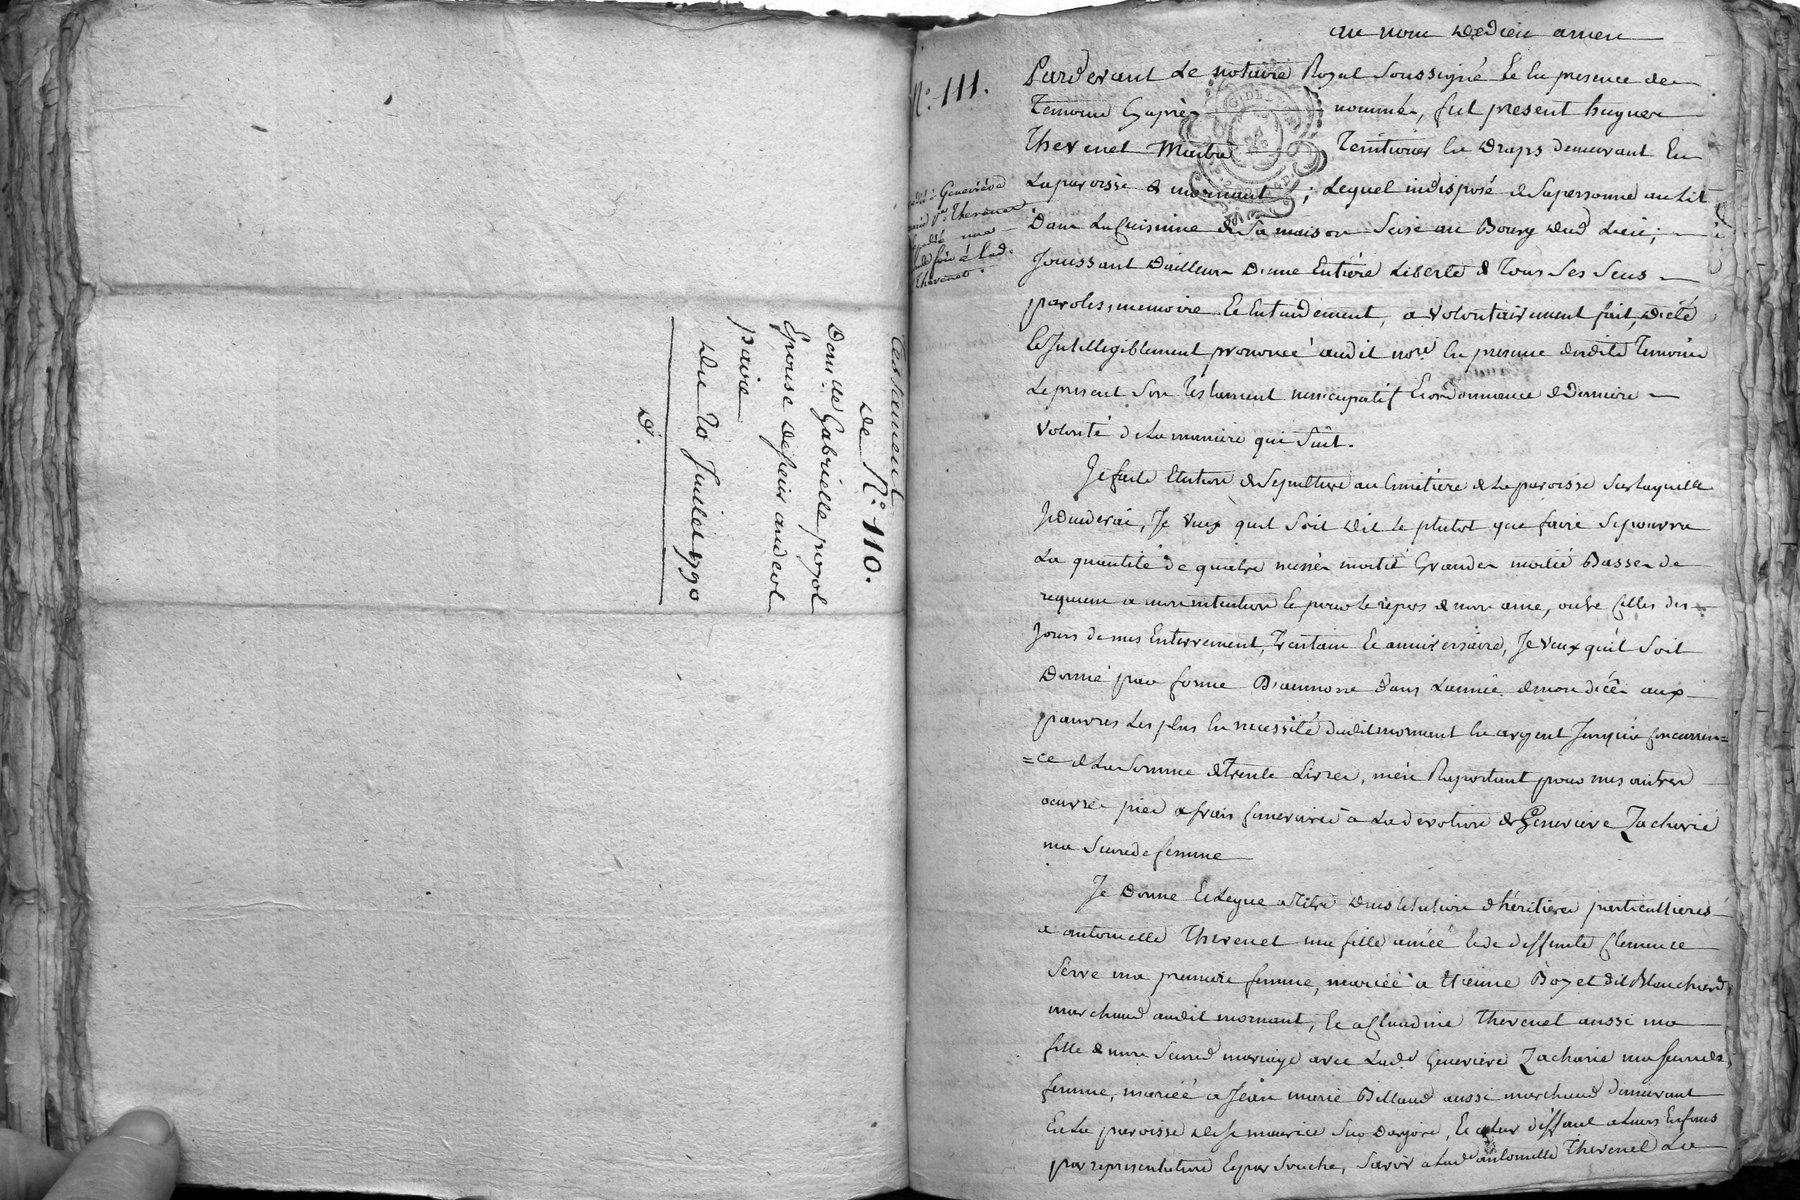 Testament
de N.° 110.
Dem.lle Gabrielle pezol
Epouse de sieur andeol
paire
du 20 Juillet 1790
D.
N.° 111.
au nom de dieu amen
Pardevant Le notaire Royal Soussigné Et En presence de
Temoins Cyaprès nommés, fut present hugues
Thevenet Maitre Teinturier En draps demeurant En
La paroisse de mornant ; Lequel indisposé de Sa personne au Lit
Dans La Cuisinne de Sa maison Scise au Bourg dud Lieu ;
Jouissant d'ailleurs d'une Entière Liberté de Tous Ses Sens
paroles, memoire Et Entendement, a volontairement fait, dicté
Et Intelligiblement prononcé audit nore En presence desdits Temoins
Le present Son Testament nuncupatif Et ordonnance de Derniere
volonté de La maniere qui Suit.
Je fais Election de Sepulture au Cimetiere de La paroisse Sur Laquelle
Je deuderai, Je veux quil Soit dit le plutot que faire Se pourra
La quantité de quatre messes moitié Grandes moitié Basses de
requiem a mon intention Et pour le repos de mon ame, outre Celles des
Jours de mes Enterrement, Trentain Et anniversaire, Je veux qu'il Soit
Donné par forme D'aumone dans L'année de mon décès aux
pauvres Les plus En necessité dudit mornant En argent Jusqu'a Concurren=
=ce de La Somme de Trente Livres, m'en Raportant pour mes autres
oeuvres pies et frais funeraires a La devotion de Genevieve Zacharie
ma Seconde femme
Je Donne Et Legue a Titre d'institution d'héritieres particullieres
a antoinette Thevenet ma fille ainée Et de deffunte Clemence
Serre ma premiere femme, mariée a Etienne Boyet dit Blanchard,
marchand audit mornant, Et a Claudine Thevenet aussi ma
fille de mon Second mariage avec Lad. Genevieve Zacharie ma Seconde
femme, mariée a Jean marie Billaud aussi marchand demeurant
En La paroisse de St maurice Sur Dargoire, Et a Leur deffaut a Leurs Enfans
par representation Et par Souche, Savoir a Lad antoinette Thevenet La